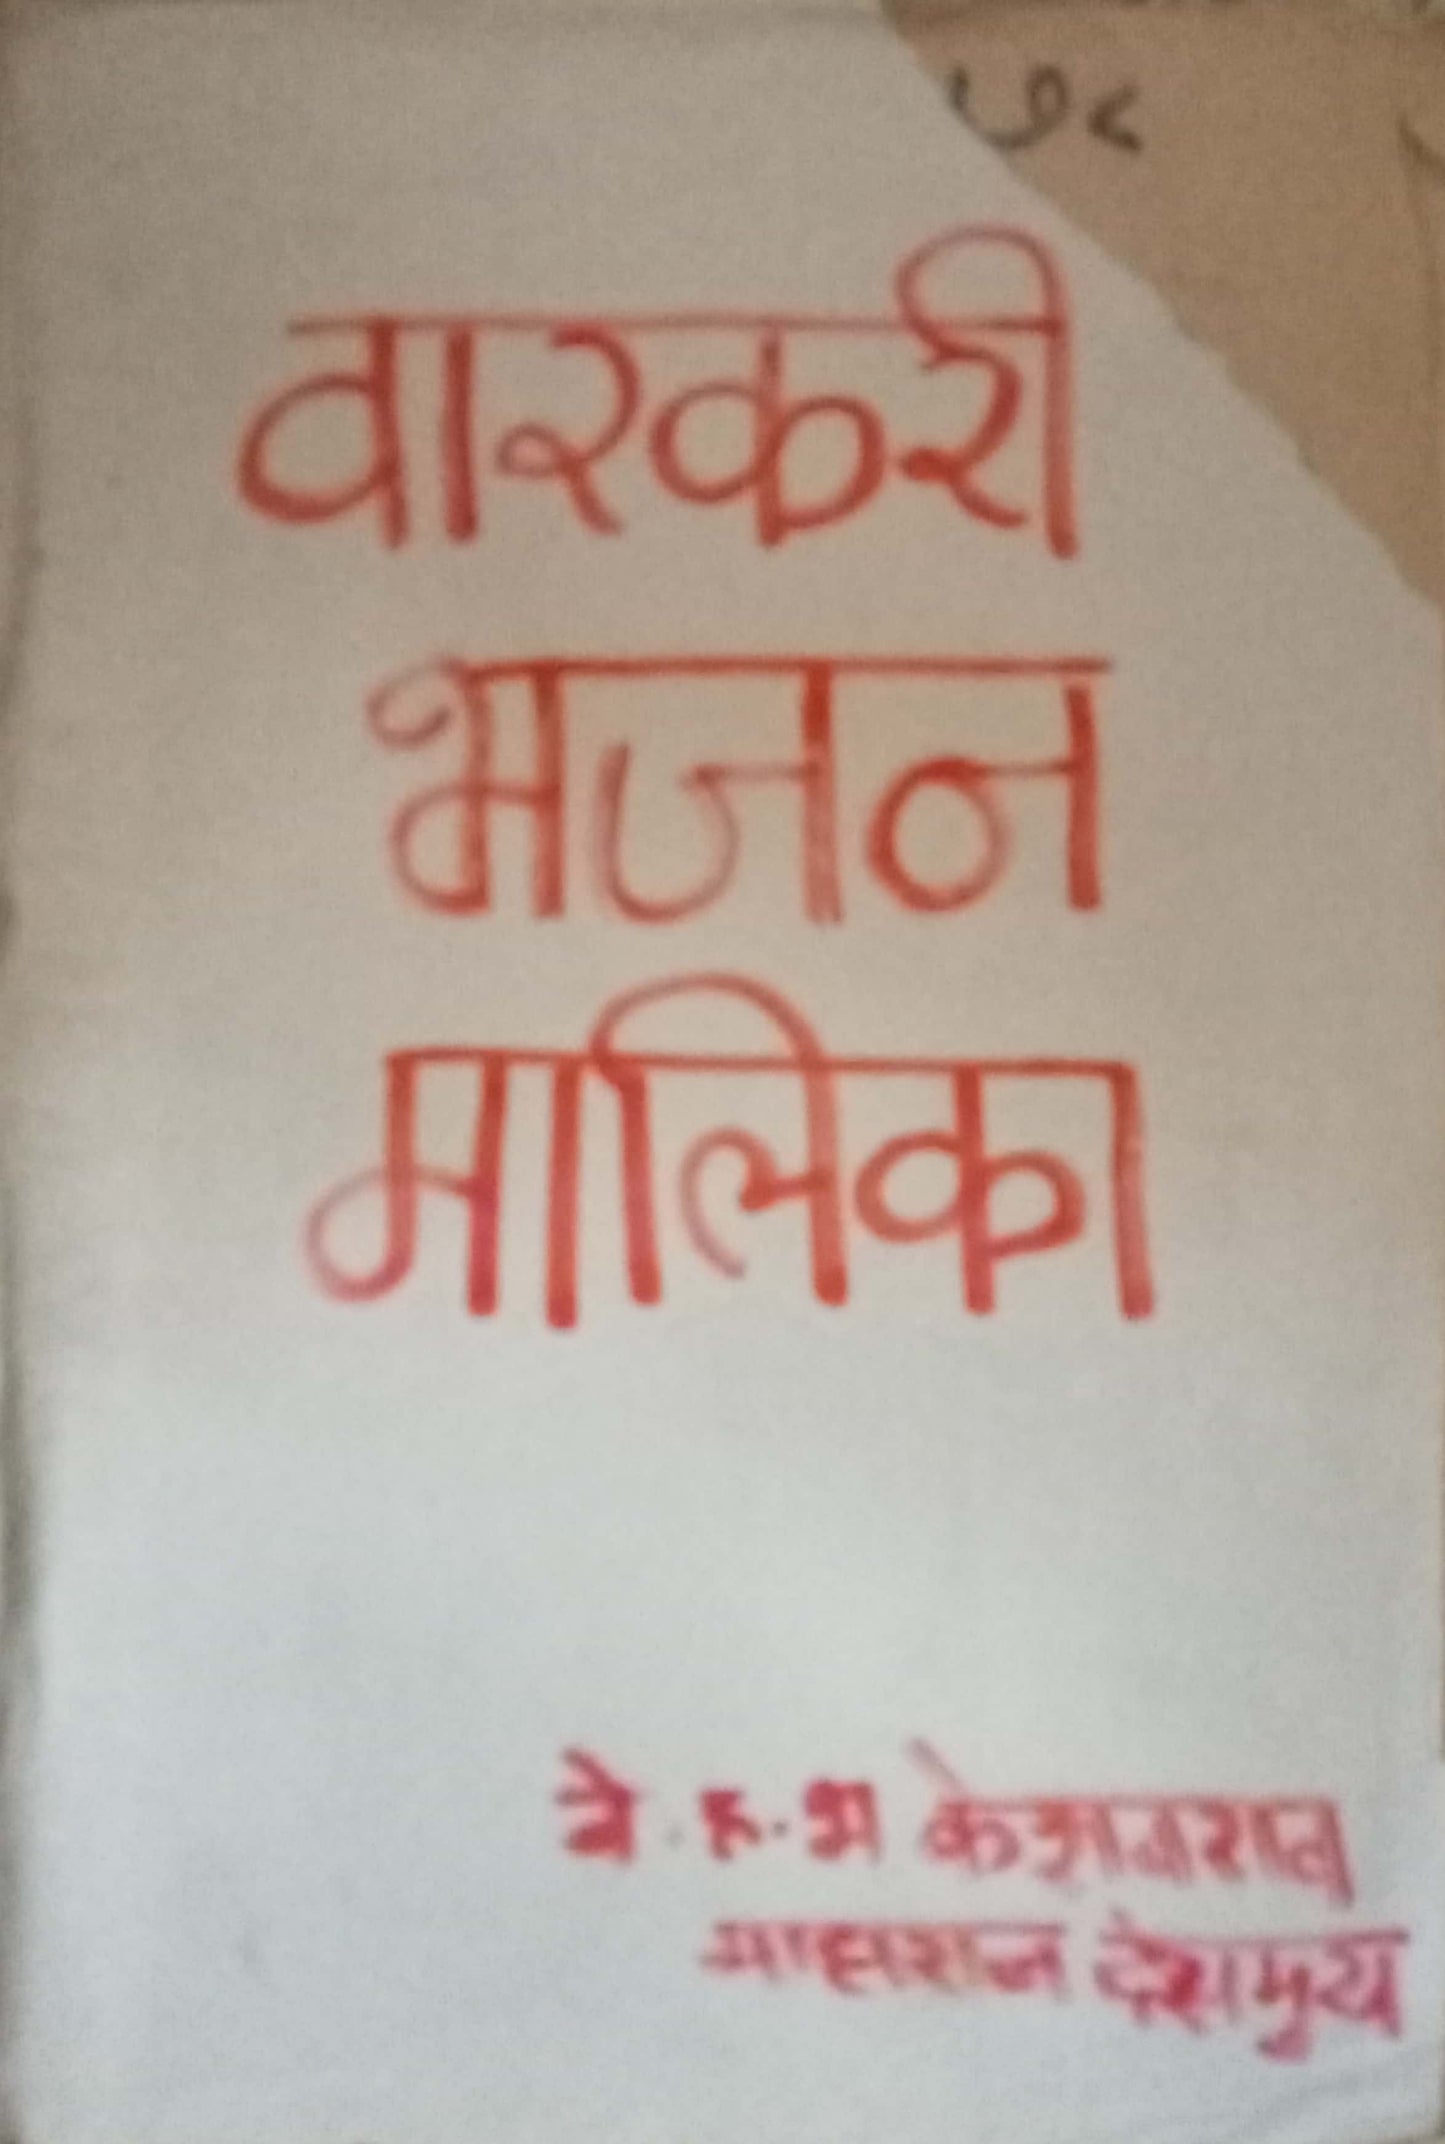 ७८
वारकरी
भजन
मालिका
वै. ह. भ केशवराव
माहाराज देशमुख